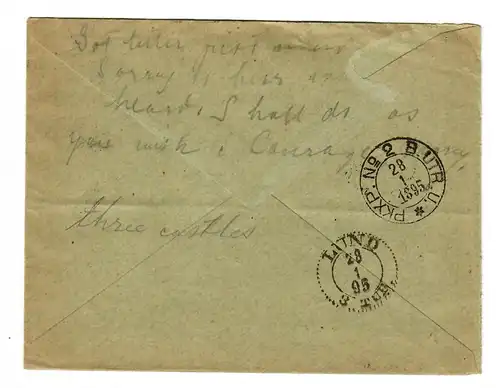 Got letter just
Sorry to hear
heard. Shall do as
you wish. Courage
three castles
PKXP. No 2 B. UTR U. *
28
1
1895
LUND
29
1
95
3 TUR